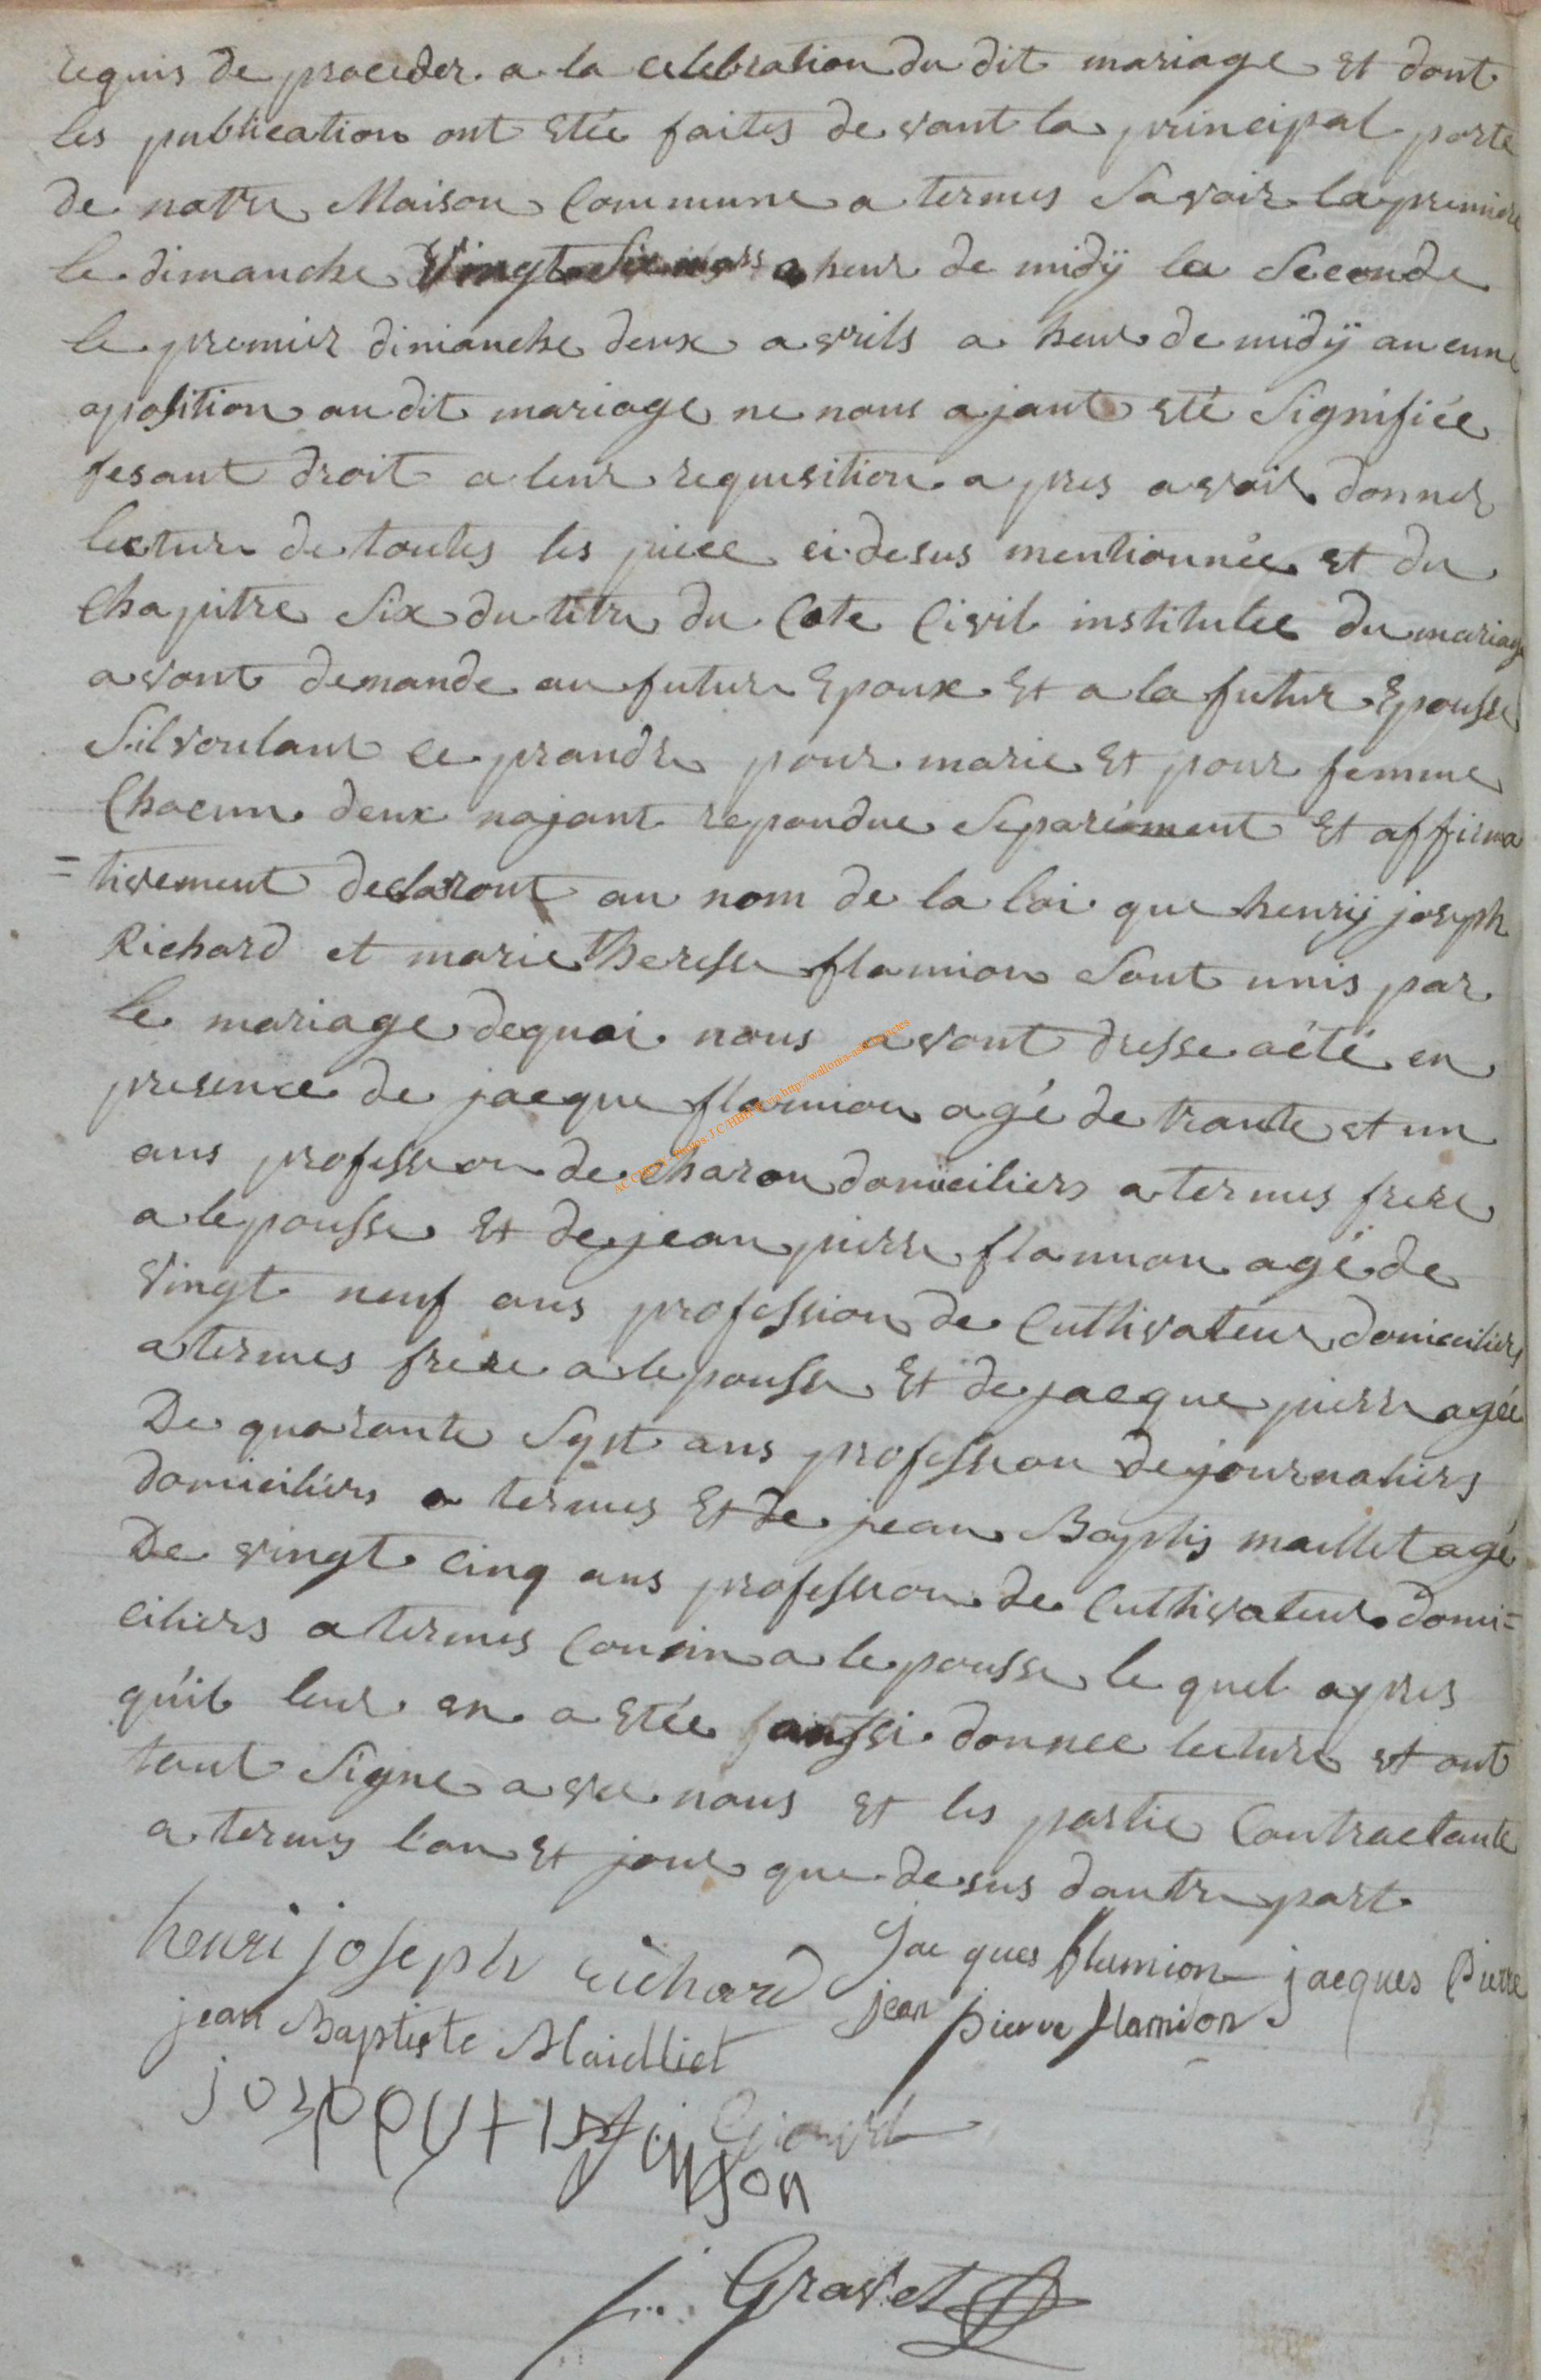 requis de proceder a la celebration du dit mariage et dont
les publication ont etée faites de vant la principal porte
de notre Maison Commune a termes Savoir la premiere
le dimanche Vingt Six mars a heur de midÿ la Seconde
le premier dimanche deux avrils a heur de midÿ aucune
oposition au dit mariage ne nous ajant eté Signifiée
fesant droit a leur requisition a pres avoir donner
lecture de toutes les piece ci desus mentionnée et du
Chapitre Six du titre du Cote Civil institulee du mariage
avont demande au future Epoux Et a la futur Epousse
Sil voulant ce prandre pour marie Et pour femme
Chacun deux najant repondue Separément Et affirma
= tivement declaront au nom de la loi que henrÿ joseph
Richard et marie Theresse flamion Sont unis par
le mariage dequoi nous avont dresse acté en
presence de jacque flamion agé de trante et un
ans profession de charon domiciliers a termes frere
a lepousse Et de jean pierre flamion agé de
Vingt neuf ans profession de Cultivateur domiciliers
a termes frere a lepousse Et de jacque pierre agée
De quarante Sept ans profession de journaliers
domiciliers a termes Et de jean Baptis maillet agé
De vingt cinq ans profession de Cultivateur domi=
ciliers a termes Cousin a lepousse le quel apres
quil leur en a etée aussi donnee lecture et ont
tout Signe avec nous Et les partie Contractante
a termes lan Et jour que desus dautre part
henri joseph richard Jacques flumion jacques Pierre
jean Baptiste Maidliet jean pierre flamion
j. Gravet